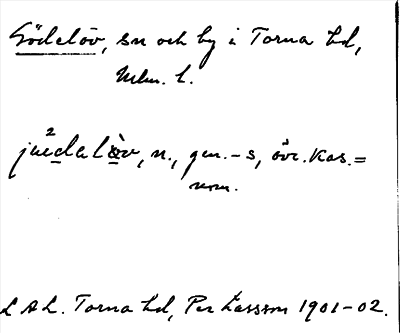 Gödelöv, sn och by i Torna hd,
Mlm. l.
jue²dalòv, n., gen. -s, övr. kas. =
nom.
L A L. Torna hd, Per Larsson 1901-02.